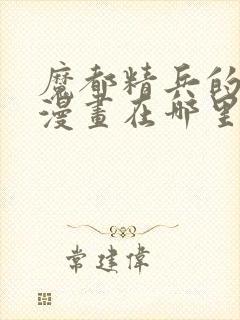 魔都精兵的
漫畫在哪里
常建偉